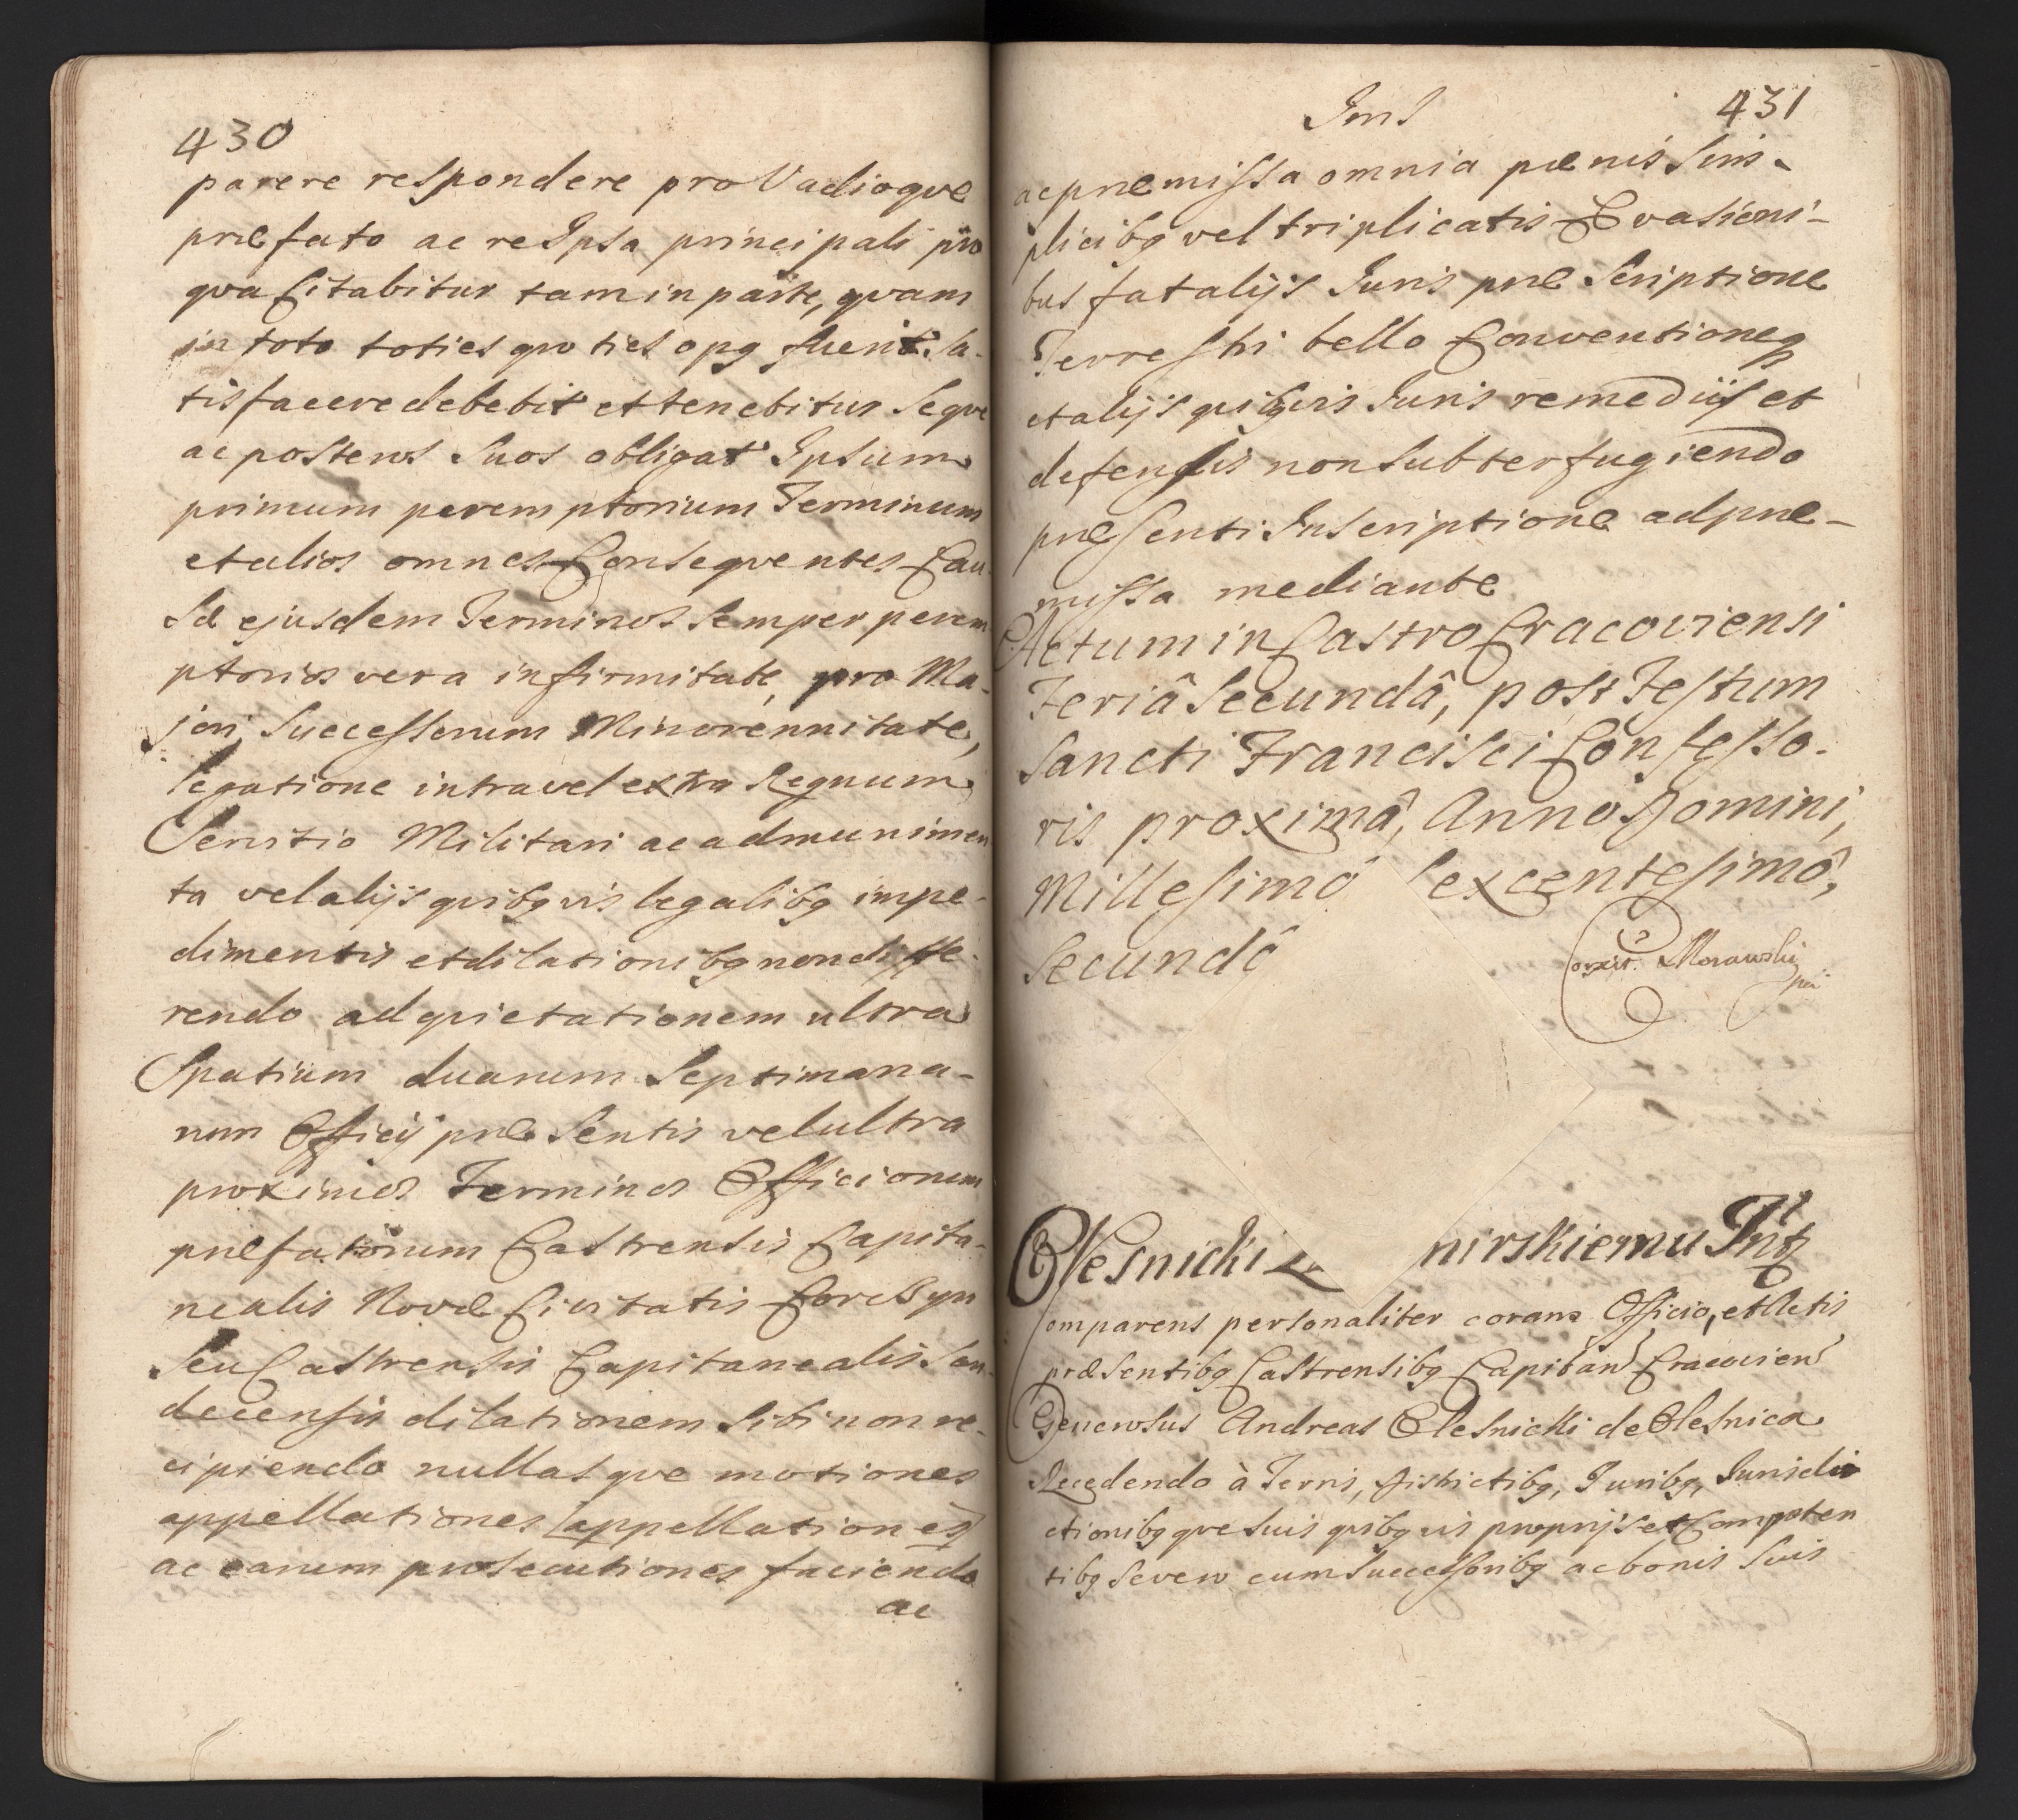 430
parere respondere pro Vadioqve
præfato ac re Ipsa principali pro
qva Citabitur tam in parte, qvam
in toto toties qvoties opg fuerit. Sa-
tisfacere debebit et tenebitur Seqve
ac posteros Suos obligat Ipsum
primum peremptorium Terminum
et alios omnes Conseqventes Cau
sæ ejusdem Terminos Semper perem
ptorios vera infirmitate, pro Ma-
jori, Successorum Minorennitate,
legatione intra vel extra Regnum
Servitio Militari ac ad munimen
ta vel alijs qvibgvis legalibg impe-
dimentis et dilationibg non diffe-
rendo ad qvietationem ultra
Spatium duarum Septimana-
rum Officij præsentis vel ultra
proximos Terminos Officiorum
præfatorum Castrensis Capita-
nealis Novæ Civitatis Corcsyn
Seu Castrensis Capitanealis San-
decensis dilationem Sibi non re-
cipiendo nullasqve motiones
appellationes [appellationes]
ac earum prosecutiones faciendo
ac
Jms 431
ac præmissa omnia pænis Sim-
plicibg vel triplicatis Evasioni-
bus fatalijs Juris præscriptione
Terrestri bello Conventioneq
et alijs qvibgvis Juris remedijs et
defensis non Subterfugiendo
præsenti Inscriptione ad præ-
missa mediante
Actum in Castro Cracoviensi
Feriâ Secundâ, post Festum
Sancti Francisci Confesso-
ris proximâ, Anno Domini,
Millesimô Sexcentesimô,
Secundô
Morawski
Olesnicki nirskiemu
Comparens personaliter coram Officio, et Actis
præsentibg Castrensibg Capitan Cracovien
Generosus Andreas Olesnicki de Olesnica
Recedendo à Terris, Districtibg, Juribg, Jurisdi
ctionibgqve Suis qvibgvis proprijs et Competen
tibg Severo cum Successoribg ac bonis Suis